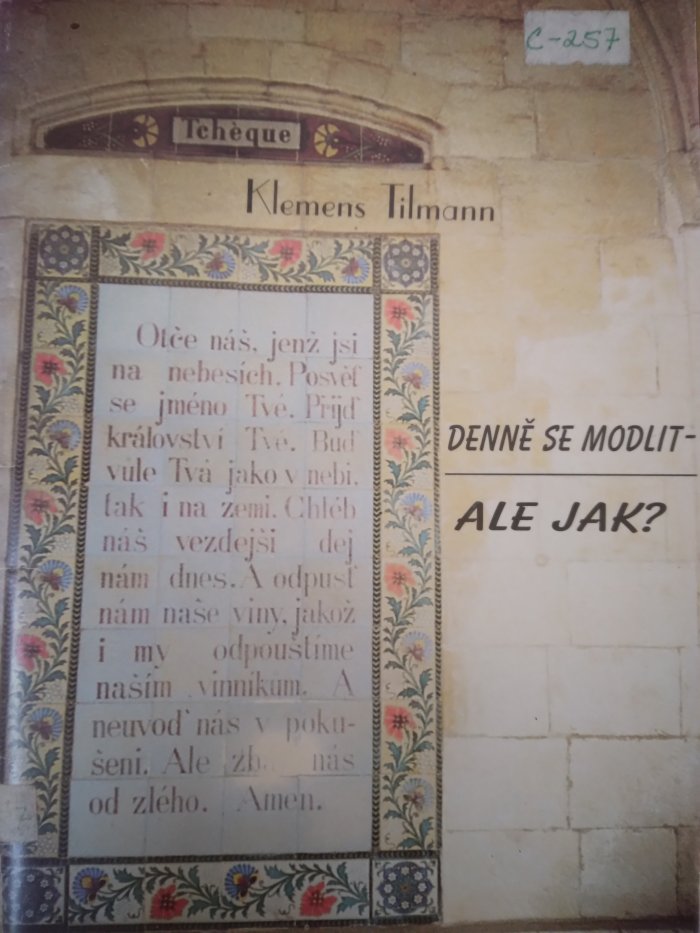 C-257
Tchèque
Klemens Tilmann
Otče náš, jenž jsi
na nebesích. Posvěť
se jméno Tvé. Přijď
království Tvé. Buď
vůle Tvá jako v nebi,
tak i na zemi. Chléb
náš vezdejši dej
nám dnes. A odpusť
nám naše viny, jakož
i my odpouštíme
naším vinníkum. A
neuvoď nás v poku-
šeni. Ale nás
od zlého. Amen.
DENNĚ SE MODLIT-
ALE JAK?